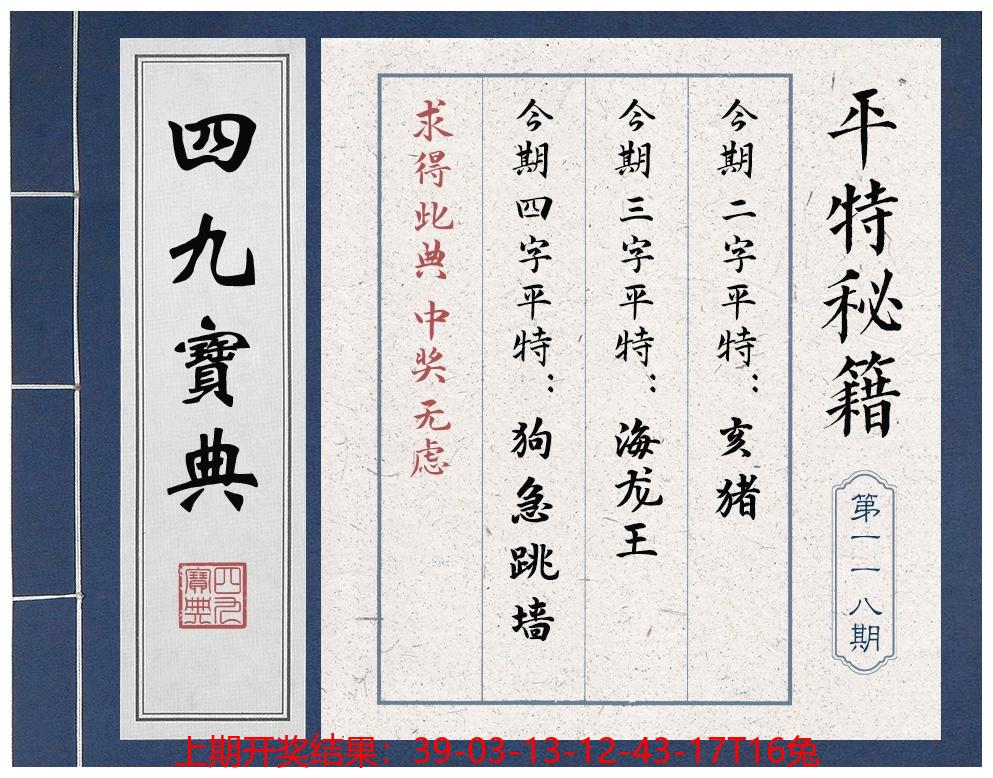 平特秘籍
第一一八期
今期二字平特：亥猪
今期三字平特：海龙王
今期四字平特：狗急跳墙
求得此典 中奖无虑
四九寶典
四九
寶典
上期开奖结果：39-03-13-12-43-17T16兔